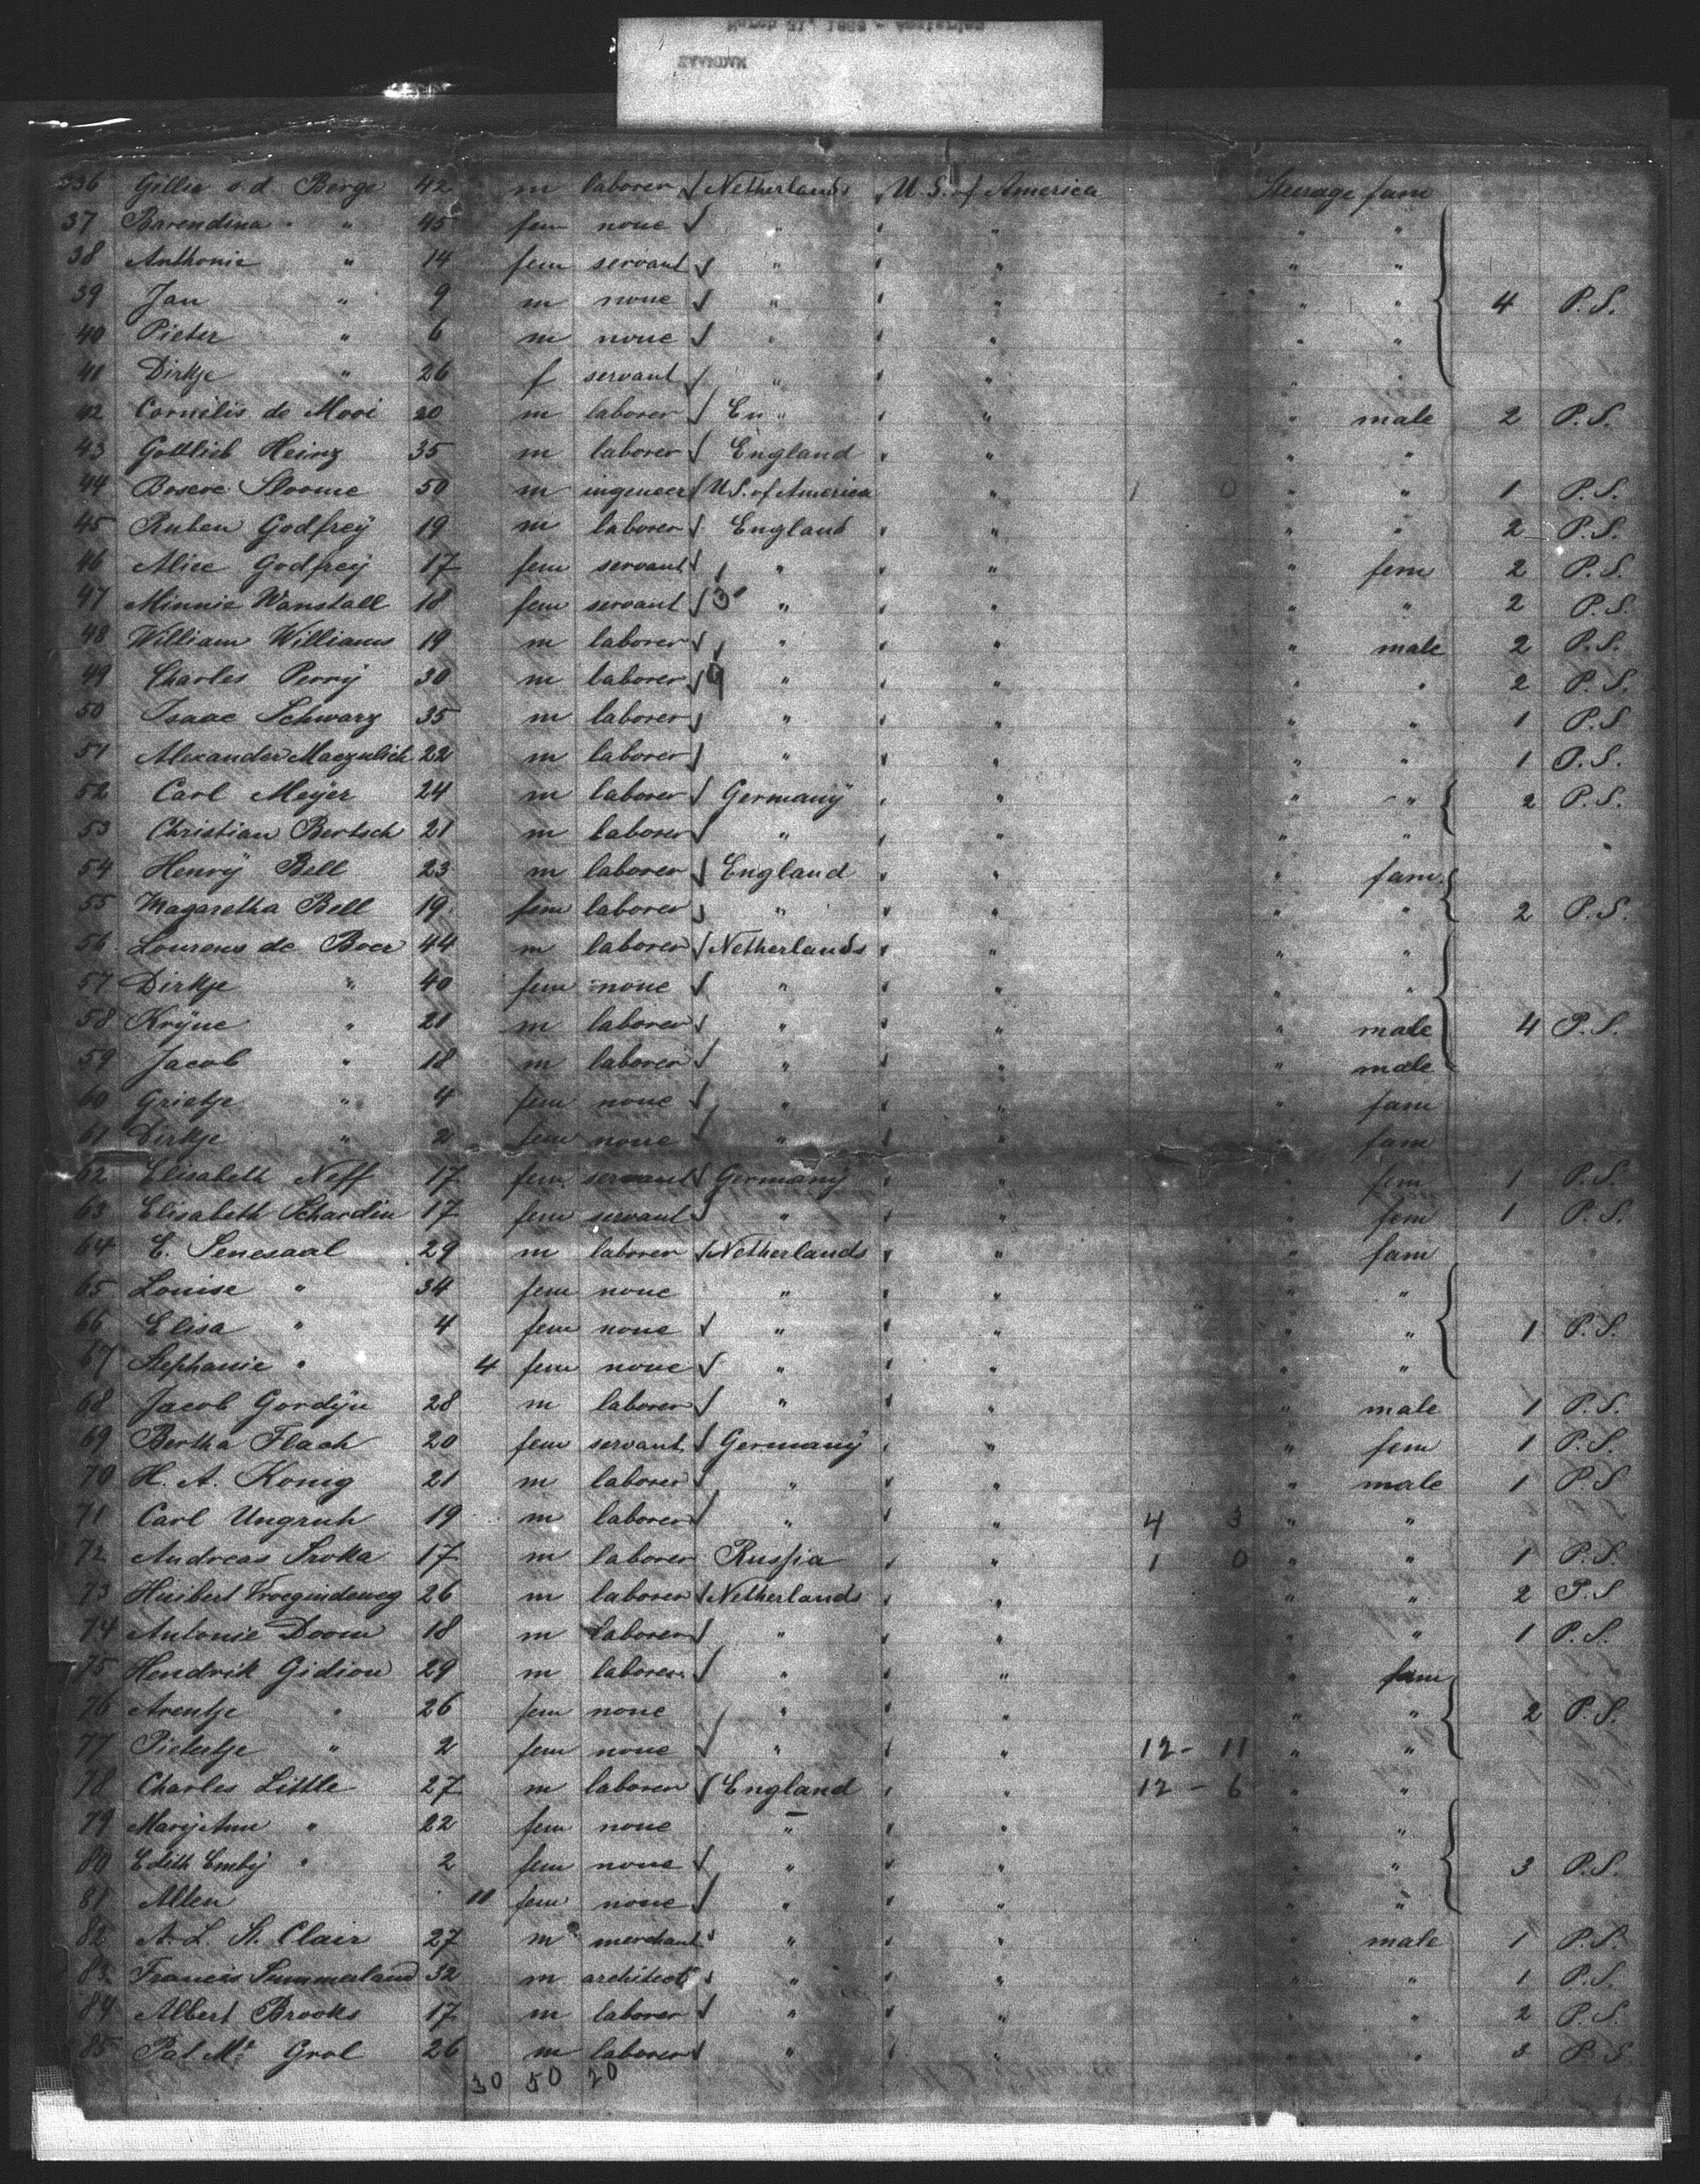 336 Gillie v.d. Berge 42 m laborer Netherlands U.S. of America Steerage fam
37 Barendina " 45 fem none " " " "
38 Anthonie " 14 fem servant " " " "
39 Jan " 9 m none " " " " 4 P.S.
40 Pieter " 6 m none " " " "
41 Dirkje " 26 f servant " " " "
42 Cornelis de Mooi 20 m laborer En " " " male 2 P.S.
43 Gottlieb Heinz 35 m laborer England " " "
44 Boscoe Sloome 50 m ingeneer U.S. of America " 1 0 " " 1 P.S.
45 Ruben Godfrey 19 m laborer England " " " 2 P.S.
46 Alice Godfrey 17 fem servant " " " fem 2 P.S.
47 Minnie Wanstall 18 fem servant 3 " " " " 2 P.S.
48 William Williams 19 m laborer " " " male 2 P.S.
49 Charles Perry 30 m laborer 9 " " " " 2 P.S.
50 Isaac Schwarz 35 m laborer " " " " 1 P.S.
51 Alexander Maezulich 22 m laborer " " " " 1 P.S.
52 Carl Meyer 24 m laborer Germany " " " 2 P.S.
53 Christian Bertsch 21 m laborer " " " "
54 Henry Bell 23 m laborer England " " fam
55 Magaretha Bell 19 fem laborer " " " " 2 P.S.
56 Lourens de Boer 44 m laborer Netherlands " " "
57 Dirkje " 40 fem none " " " "
58 Kryne " 21 m laborer " " " male 4 P.S.
59 Jacob " 18 m laborer " " " male
60 Grietje " 4 fem none " " " fam
61 Dirkje " 2 fem none " " fam
62 Elisabeth Neff 17 fem servant Germany " " fem 1 P.S.
63 Elisabeth Schardin 17 fem servant " " " fem 1 P.S.
64 E. Senesaal 29 m laborer Netherlands " " fam
65 Louise " 34 fem none " " " "
66 Elisa " 4 fem none " " " " 1 P.S.
67 Stephanie " 4 fem none " " " "
68 Jacob Gordyn 28 m laborer " " " male 1 P.S.
69 Bertha Flach 20 fem servant Germany " " fem 1 P.S.
70 H. A. Konig 21 m laborer " " " male 1 P.S
71 Carl Ungruh 19 m laborer " " 4 3 " "
72 Andreas Sroka 17 m laborer Russia " 1 0 " " 1 P.S.
73 Huibert Vroegindeweg 26 m laborer Netherlands " " " 2 P.S
74 Antonie Doorn 18 m Laborer " " " " 1 P.S.
75 Hendrik Gidion 29 m laborer " " " fam
76 Arentje " 26 fem none " " " " 2 P.S.
77 Pietertje " 2 fem none " " 12 - 11 " "
78 Charles Little 27 m laborer England " 12 - 6 " "
79 Mary Ann " 22 fem none " " " "
80 Edith Emily " 2 fem none " " " " 3 P.S.
81 Allen 11 fem none " " " "
82 A. L. St. Clair 27 m merchant " " " male 1 P.S.
83 Francis Summerland 32 m architect " " " " 1 P.S.
84 Albert Brooks 17 m laborer " " " " 2 P.S.
85 Pat Mc Grol 26 m laborer " " " " 3 P.S
30 50 20